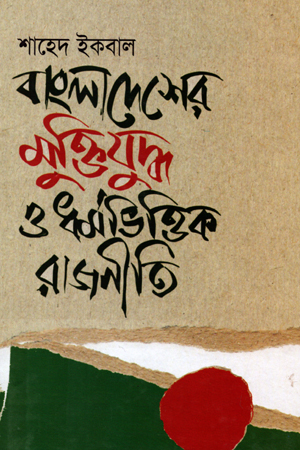 শাহেদ ইকবাল
বাংলাদেশের
মুক্তিযুদ্ধ
ও ধর্মভিত্তিক
রাজনীতি